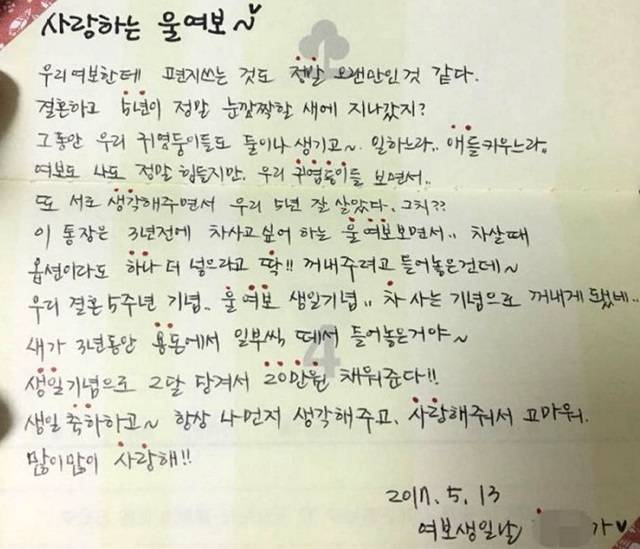 사랑하는 울여보~♥
우리여보한테 편지쓰는 것도 정말 오랜만인것 같다.
결혼하고 5년이 정말 눈깜짝할 새에 지나갔지?
그동안 우리 귀염둥이들도 둘이나 생기고~ 일하느라.. 애들키우느라..
여보도 나도 정말 힘들지만, 우리 귀염둥이들 보면서..
또 서로 생각해주면서 우리 5년 잘 살았다. 그치??
이 통장은 3년전에 차사고싶어 하는 울여보보면서.. 차살때
옵션이라도 하나 더 넣으라고 딱!! 꺼내주려고 들어놓은건데~
우리 결혼5주년 기념.. 울여보 생일기념.. 차 사는 기념으로 꺼내게 됐네..
내가 3년동안 용돈에서 일부씩 떼서 들어놓은거야~
생일기념으로 2달 당겨서 20만원 채워준다!!
생일 축하하고~ 항상 나먼저 생각해주고, 사랑해줘서 고마워.
많이많이 사랑해!!
2017. 5. 13
여보생일날 가♥
4